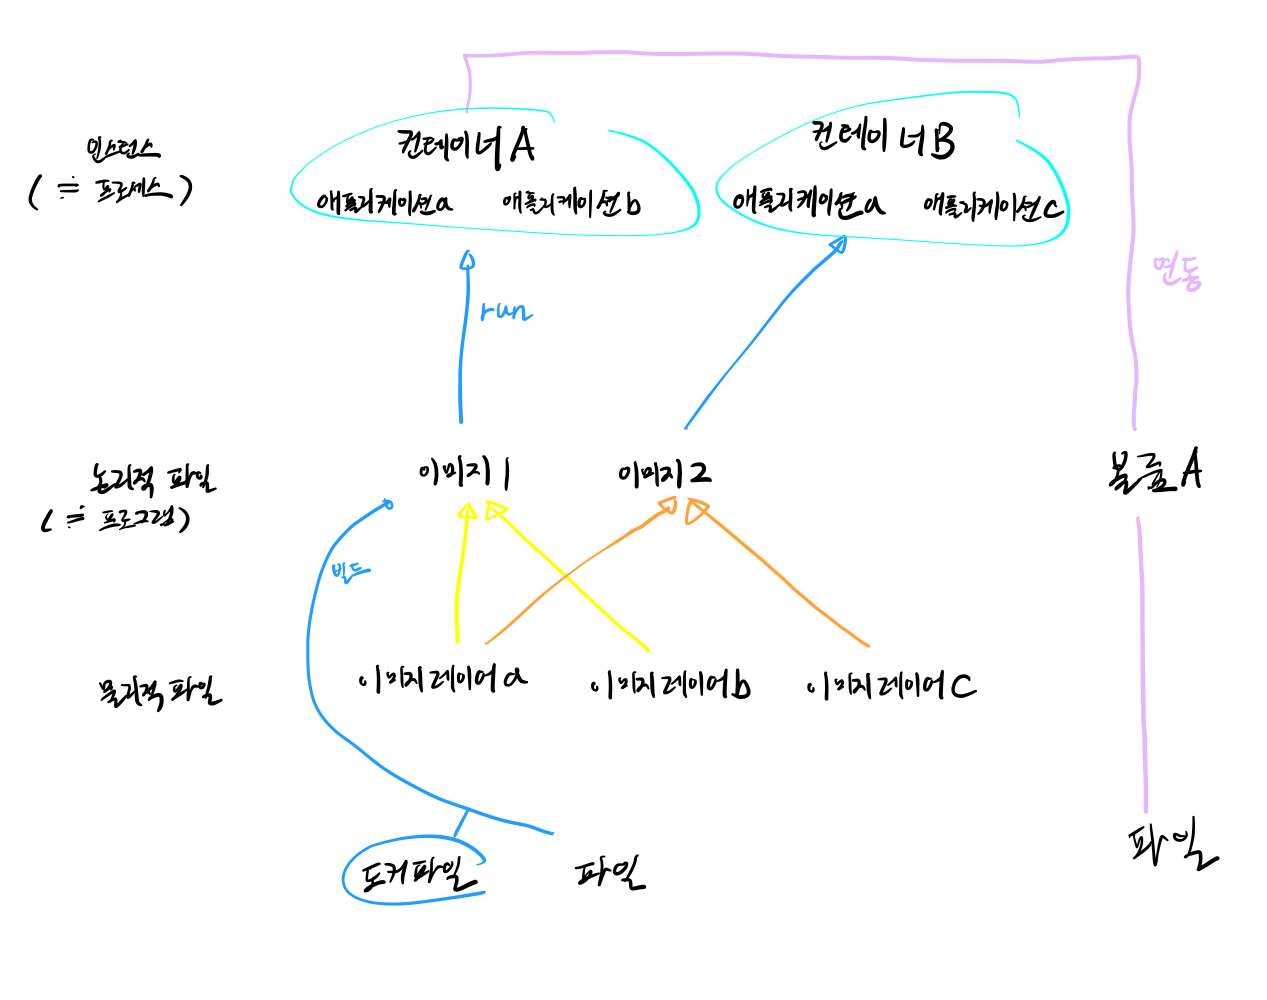 인스턴스
(≒ 프로세스)
컨테이너A
애플리케이션a 애플리케이션b
컨테이너B
애플리케이션a 애플리케이션c
run
연동
논리적 파일
(≒ 프로그램)
이미지1
이미지2
볼륨A
빌드
물리적 파일
이미지레이어a
이미지레이어b
이미지레이어c
도커파일
파일
파일